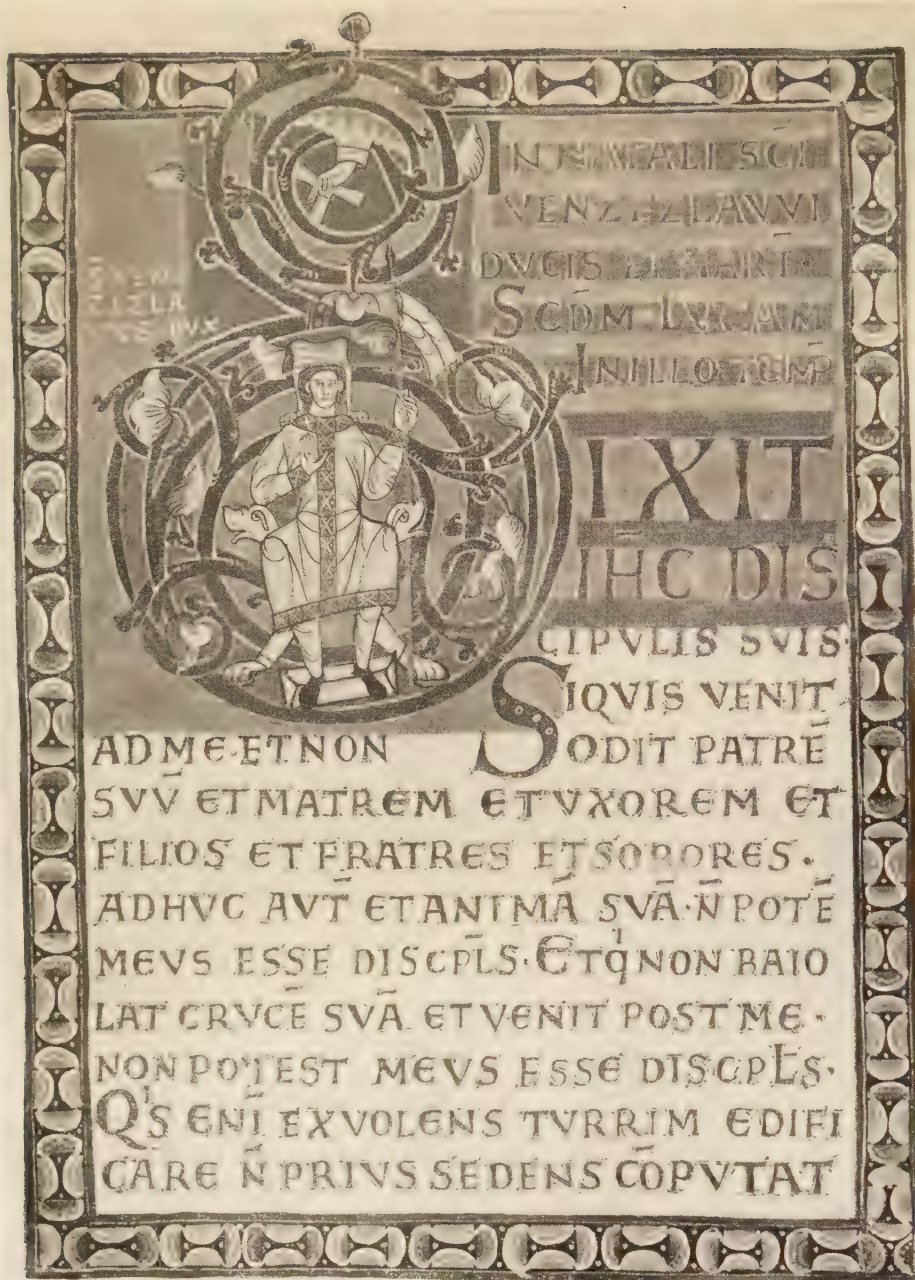 SVEN
CIZLA
VS DVX
IN NATALI SC̄I
VENZEZLAVVI
DVCIS
SCD̄M LVCAM
IN ILLO TEMP̄
DIXIT
IH̄C DIS
CIPVLIS SVIS·
SIQVIS VENIT
AD ME·ET NON ODIT PATRĒ
SVV̄ ET MATREM ET VXOREM ET
FILIOS ET FRATRES ET SORORES·
ADHVC AVT̄ ET ANIMĀ SVĀ·N̄ POTĒ
MEVS ESSE DISCPL̄S·ET Q̍ NON BAIO
LAT CRVCĒ SVĀ ET VENIT POST ME·
NON POTEST MEVS ESSE DISCPL̄S·
Q̍S ENĪ EX VOLENS TVRRIM EDIFI
CARE N̄ PRIVS SEDENS CŌPVTAT